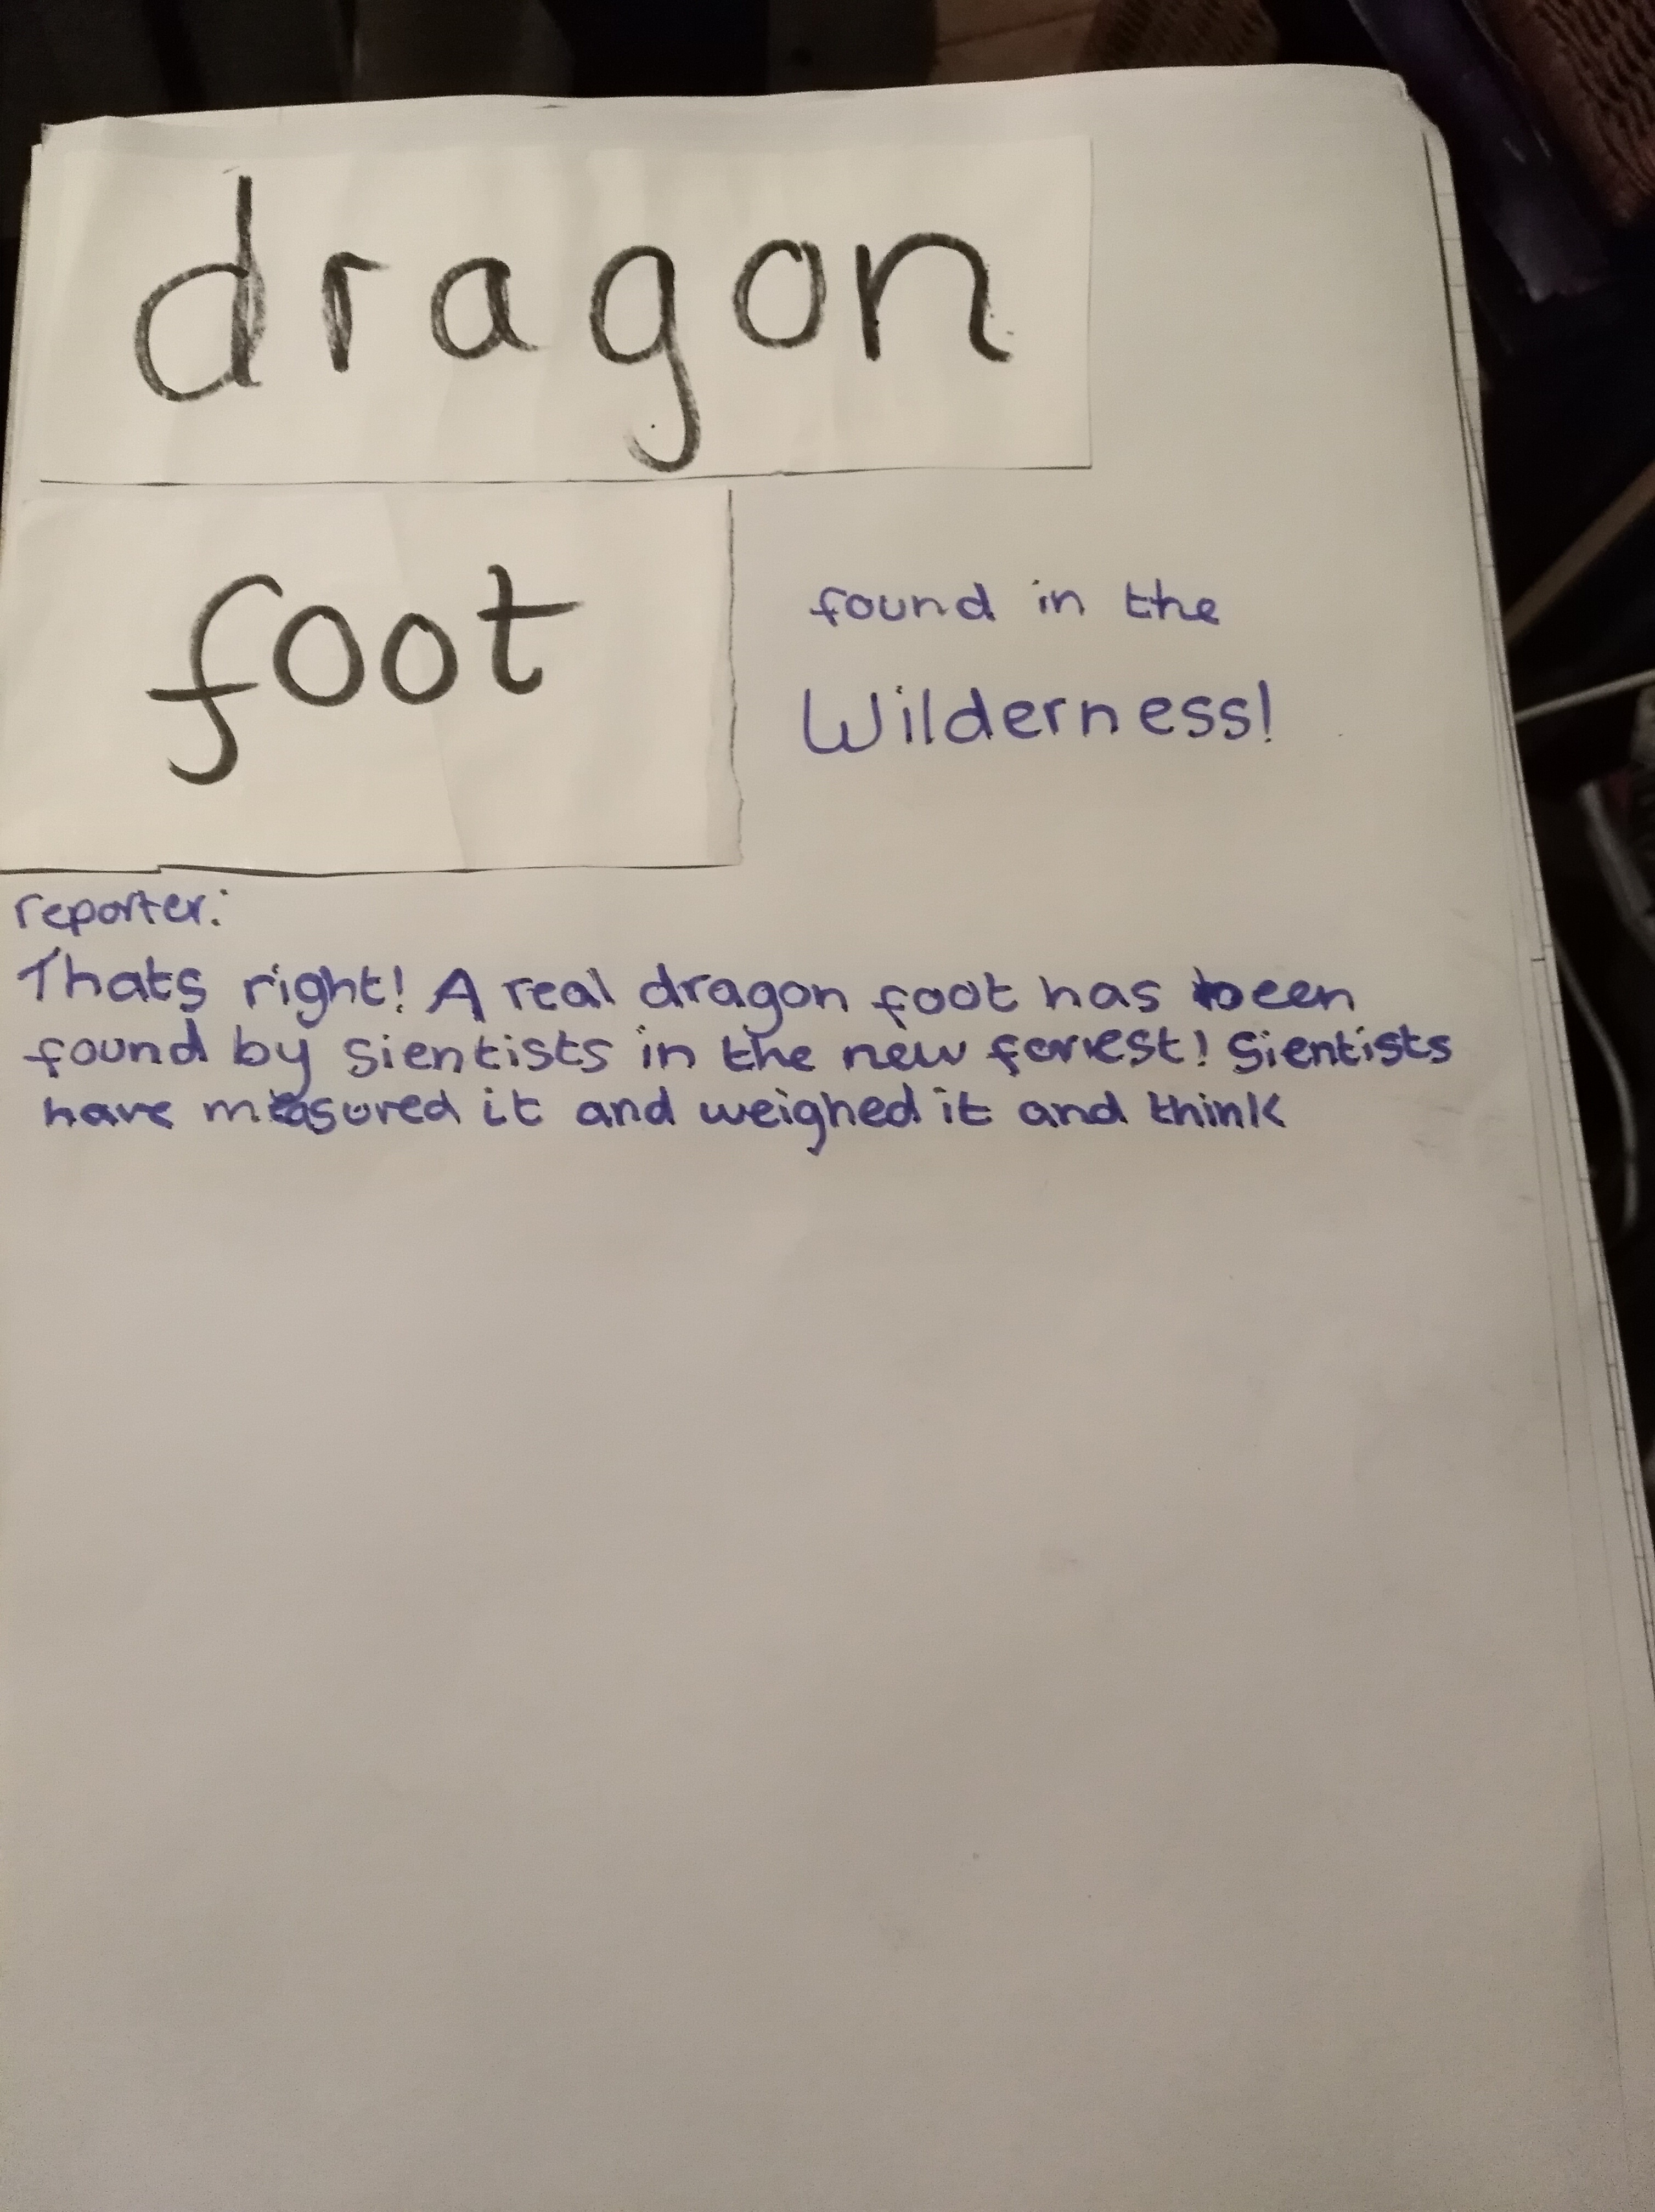 dragon
foot
found in the
Wilderness!
reporter:
Thats right! A real dragon foot has been
found by sientists in the new forrest! Sientists
have measured it and weighed it and think